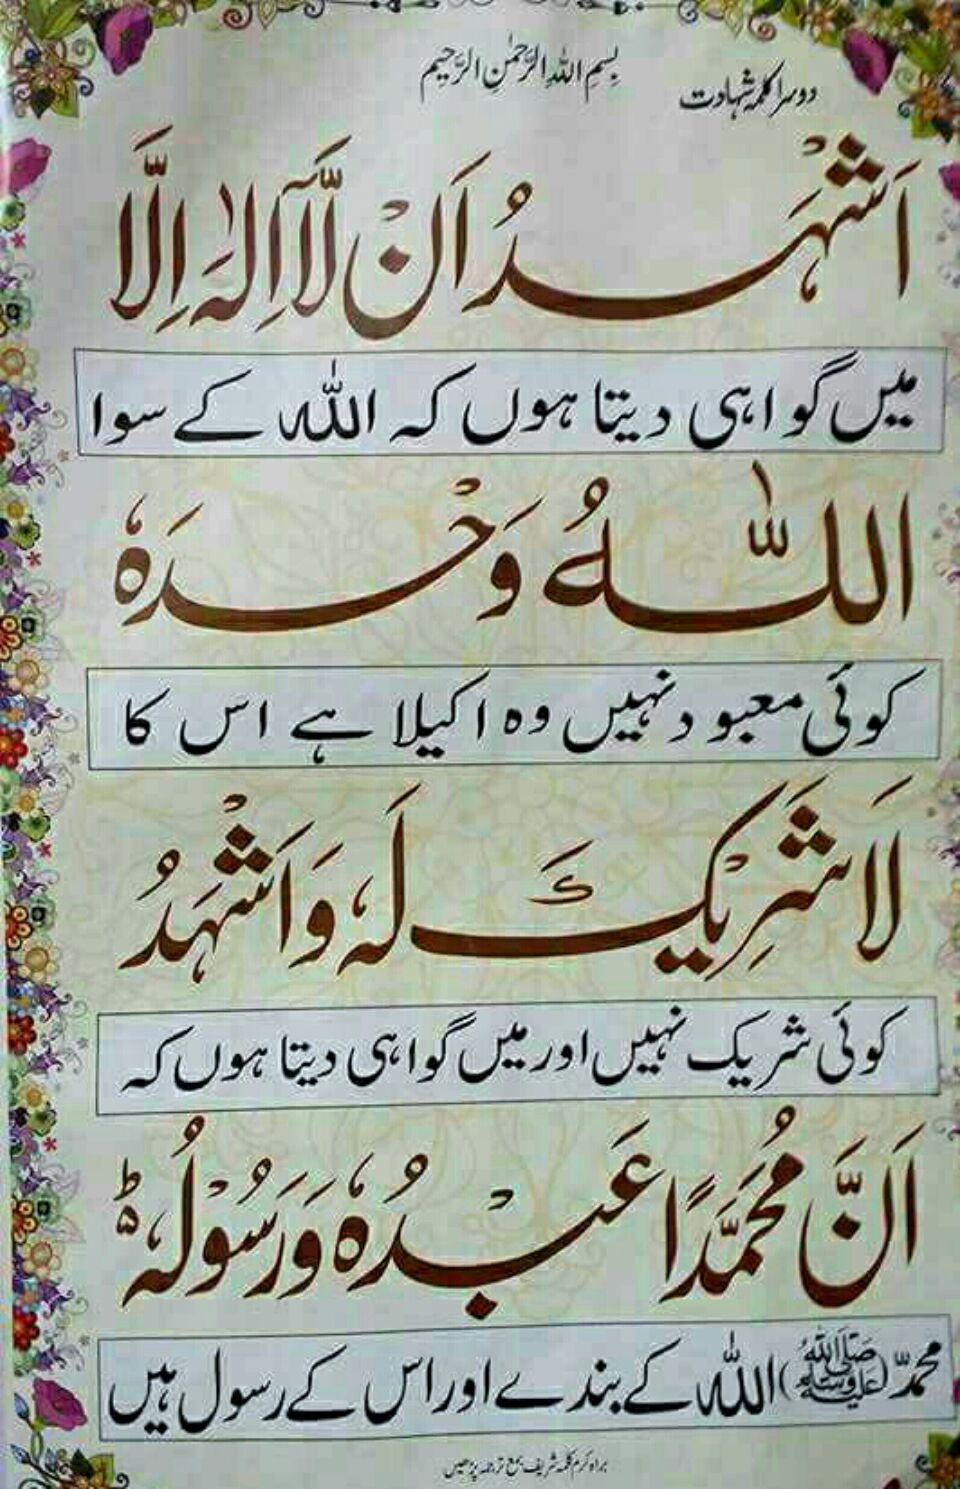 بِسْمِ اللهِ الرَّحْمٰنِ الرَّحِيْمِ
دوسرا کلمہ شہادت
اَشْهَدُ اَنْ لَّآ اِلٰهَ اِلَّا
میں گواہی دیتا ہوں کہ اللہ کے سوا
اللّٰهُ وَحْدَهٗ
کوئی معبود نہیں وہ اکیلا ہے اس کا
لَا شَرِيْكَ لَهٗ وَاَشْهَدُ
کوئی شریک نہیں اور میں گواہی دیتا ہوں کہ
اَنَّ مُحَمَّدًا عَبْدُهٗ وَرَسُوْلُهٗ ؕ
محمدّ (صلى الله عليه وسلم) اللہ کے بندے اور اس کے رسول ہیں
براہ کرم کلمہ شریف بمع ترجمہ پڑھیں